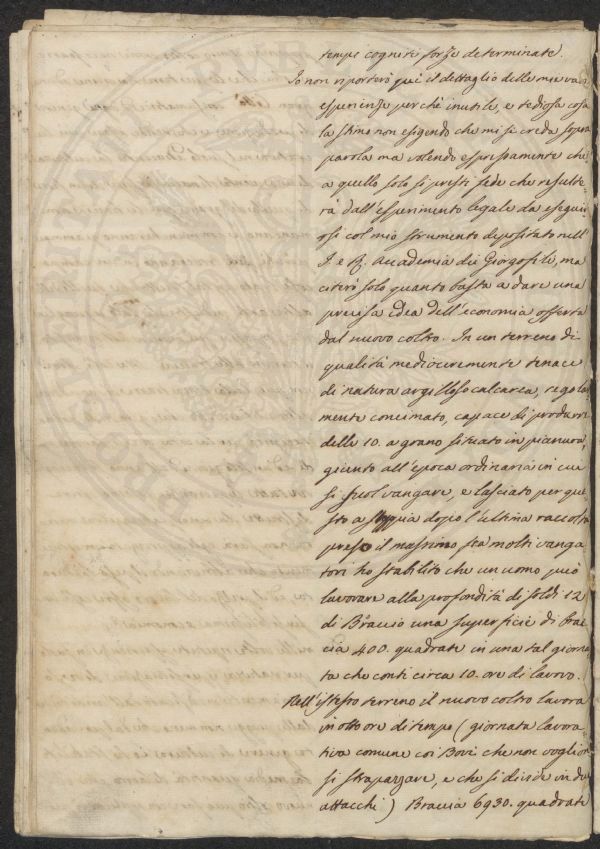 tempo cognite forze determinate.
Io non riporterò quì il dettaglio delle mie varie
esperienze perchè inutile, e tediosa cosa
la stimo non esigendo che mi si creda sopra
parola ma volendo espressamente che
a quello solo si presti fede che resulte
rà dall'esperimento legale da eseguir
si col mio strumento depositato nell'
I. e R. Accademia dei Giorgofili, ma
citerò solo quanto basta a dare una
precisa idea dell'economia offerta
dal nuovo coltro. In un terreno di
qualità mediocremente tenace
di natura argilloso calcarea, regolar
mente concimato, capace di produrre
delle 10. a grano situato in pianura,
giunto all'epoca ordinaria in cui
si suol vangare, e lasciato per que
sto a stoppia dopo l'ultima raccolta
preso il massimo fra molti vanga
tori ho stabilito che un uomo può
lavorare alla profondità di soldi 12
di Braccio una superficie di brac
cia 400. quadrate in una tal giorna
ta che conti circa 10. ore di lavoro.
Nell'istesso terreno il nuovo coltro lavora
in otto ore di tempo (giornata lavora
tiva comune coi Bovi che non voglion
si strapazzare, e che si divide in due
attacchi) Braccia 6930. quadrate